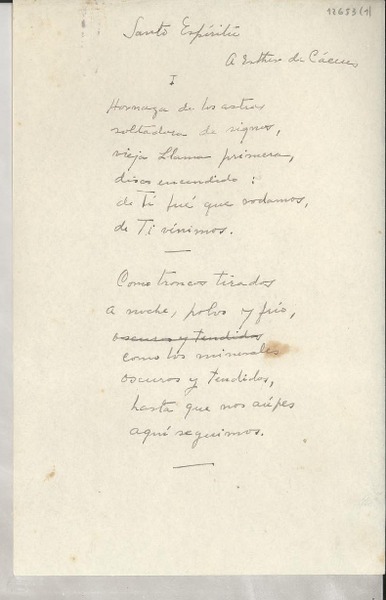 12653(1)
Santo Espíritu
A Esther de Cáceres
I
Hornaza de los astros
soltadora de signos,
vieja Llama primera,
disco encendido:
de Ti fué que rodamos,
de Ti vinimos.
Como troncos tirados
a noche, polvo y frío,
oscuros y tendidos
como los minerales
oscuros y tendidos,
hasta que nos aúpes
aquí seguimos.